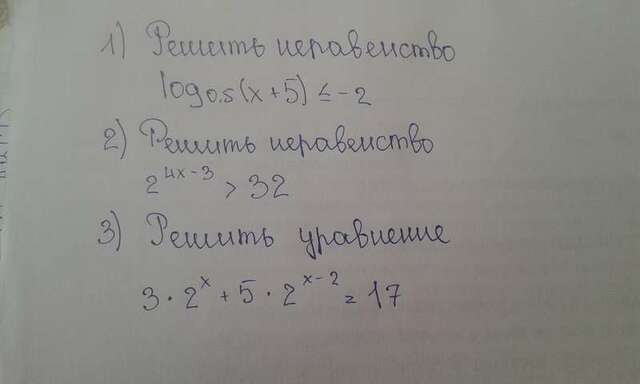 1) Решить неравенство
log₀.₅(x+5) ≤ -2
2) Решить неравенство
2^(4x-3) > 32
3) Решить уравнение
3 · 2^x + 5 · 2^(x-2) = 17